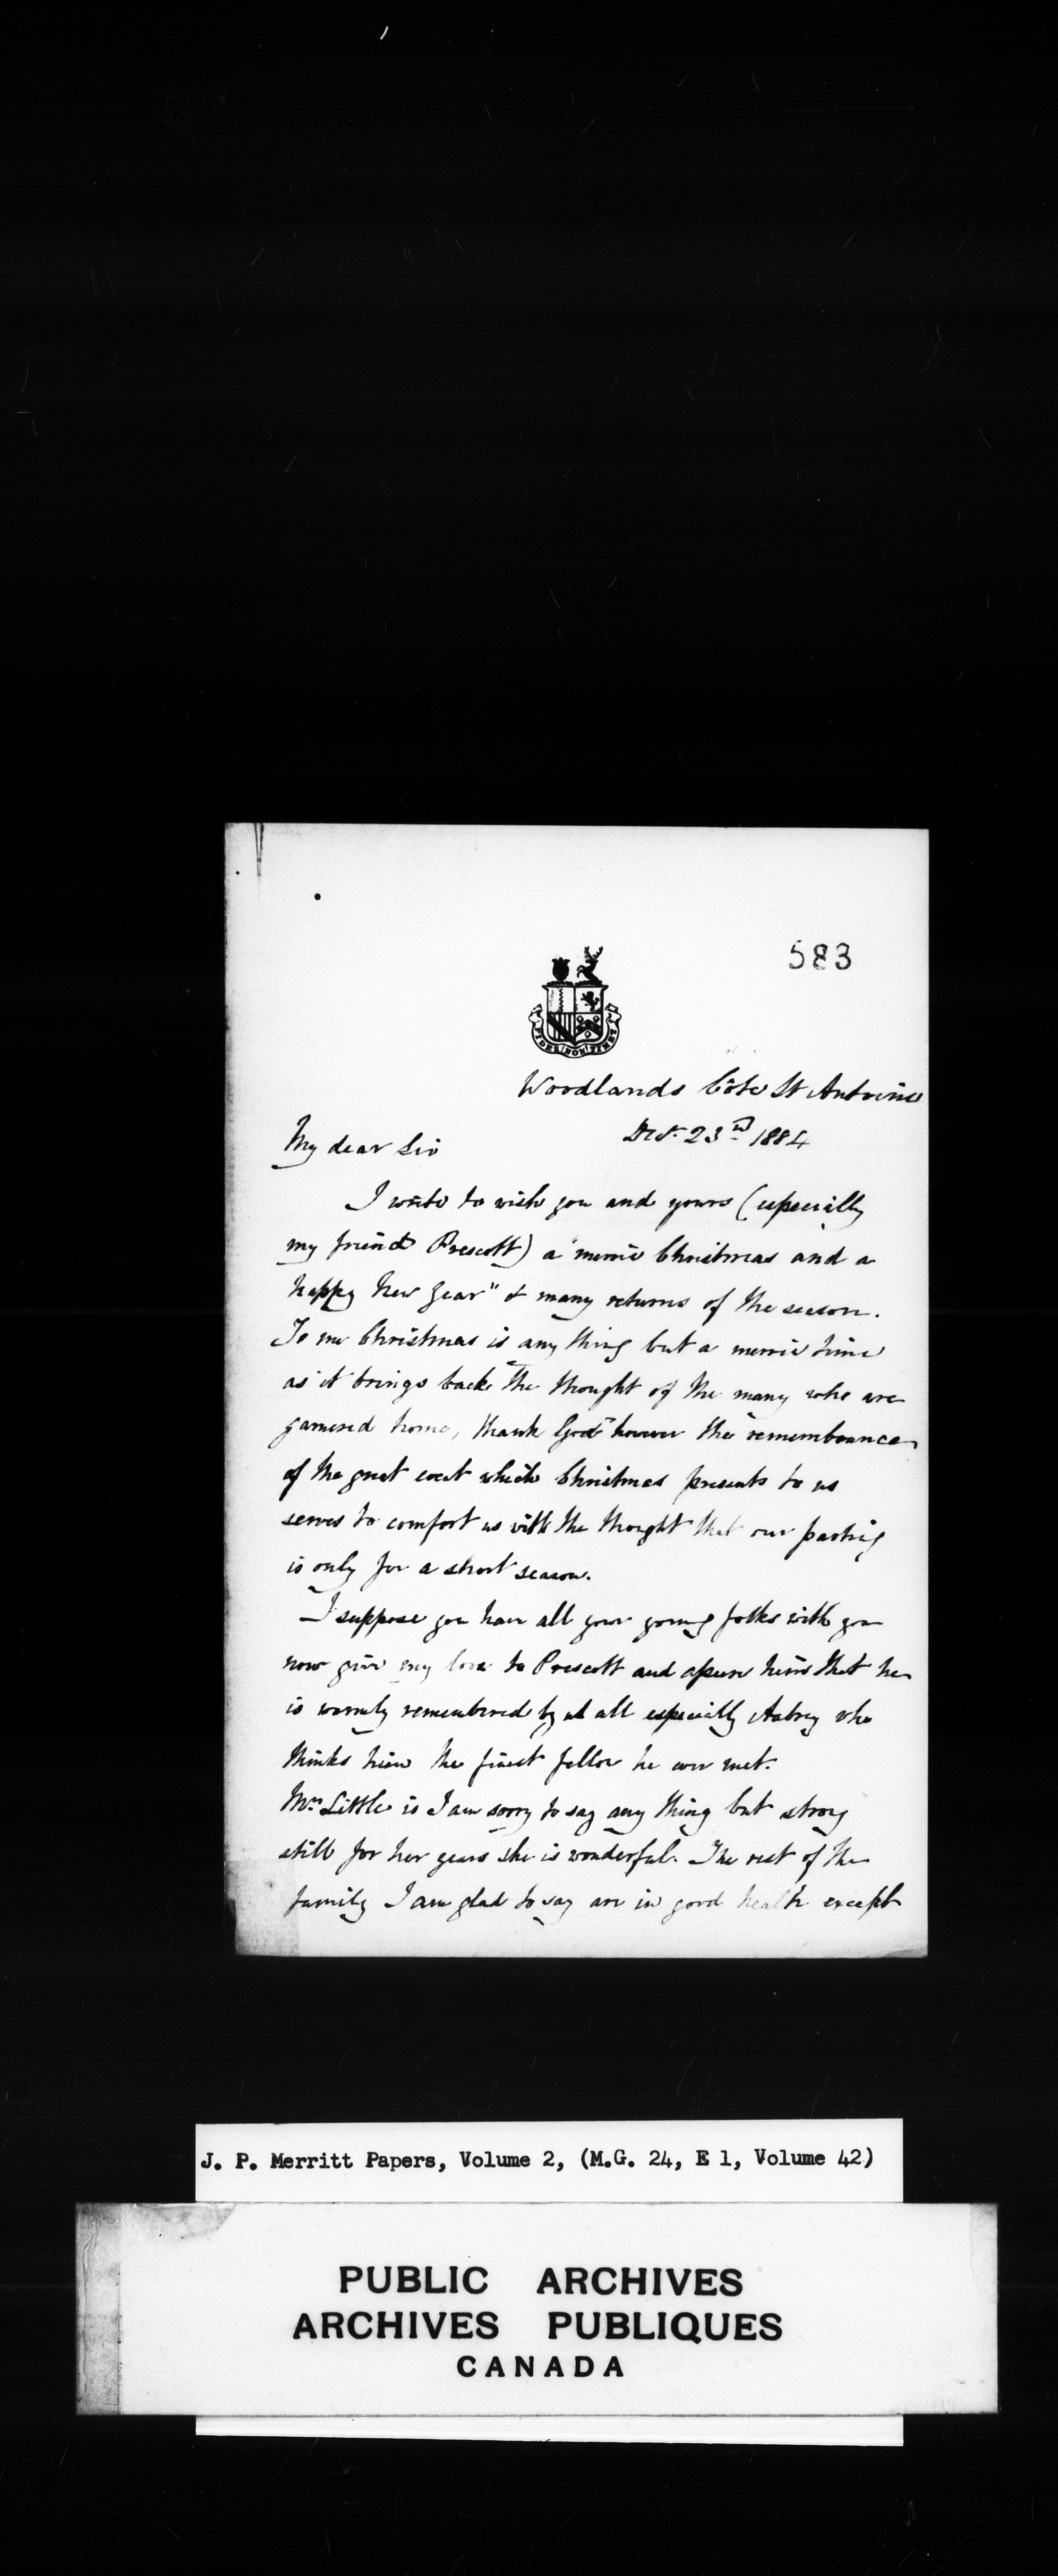 583
FIDES NON TIMET
Woodlands Côte St Antoine
Dec. 23rd 1884
My dear Sir
I write to wish you and yours (especially
my friend Prescott) a "merrie Christmas and a
happy New Year" & many returns of the season.
To me Christmas is any thing but a merrie time
as it brings back the thought of the many who are
garnered home, thank God however the remembrance
of the great event which Christmas presents to us
serves to comfort us with the thought that our parting
is only for a short season.
I suppose you have all your young folks with you
now give my love to Prescott and assure him that he
is warmly remembered by us all especially Aubrey who
thinks him the finest fellow he ever met.
Mrs Little is I am sorry to say any thing but strong
still for her years she is wonderful. The rest of the
family I am glad to say are in good health except
J. P. Merritt Papers, Volume 2, (M.G. 24, E 1, Volume 42)
PUBLIC ARCHIVES
ARCHIVES PUBLIQUES
CANADA